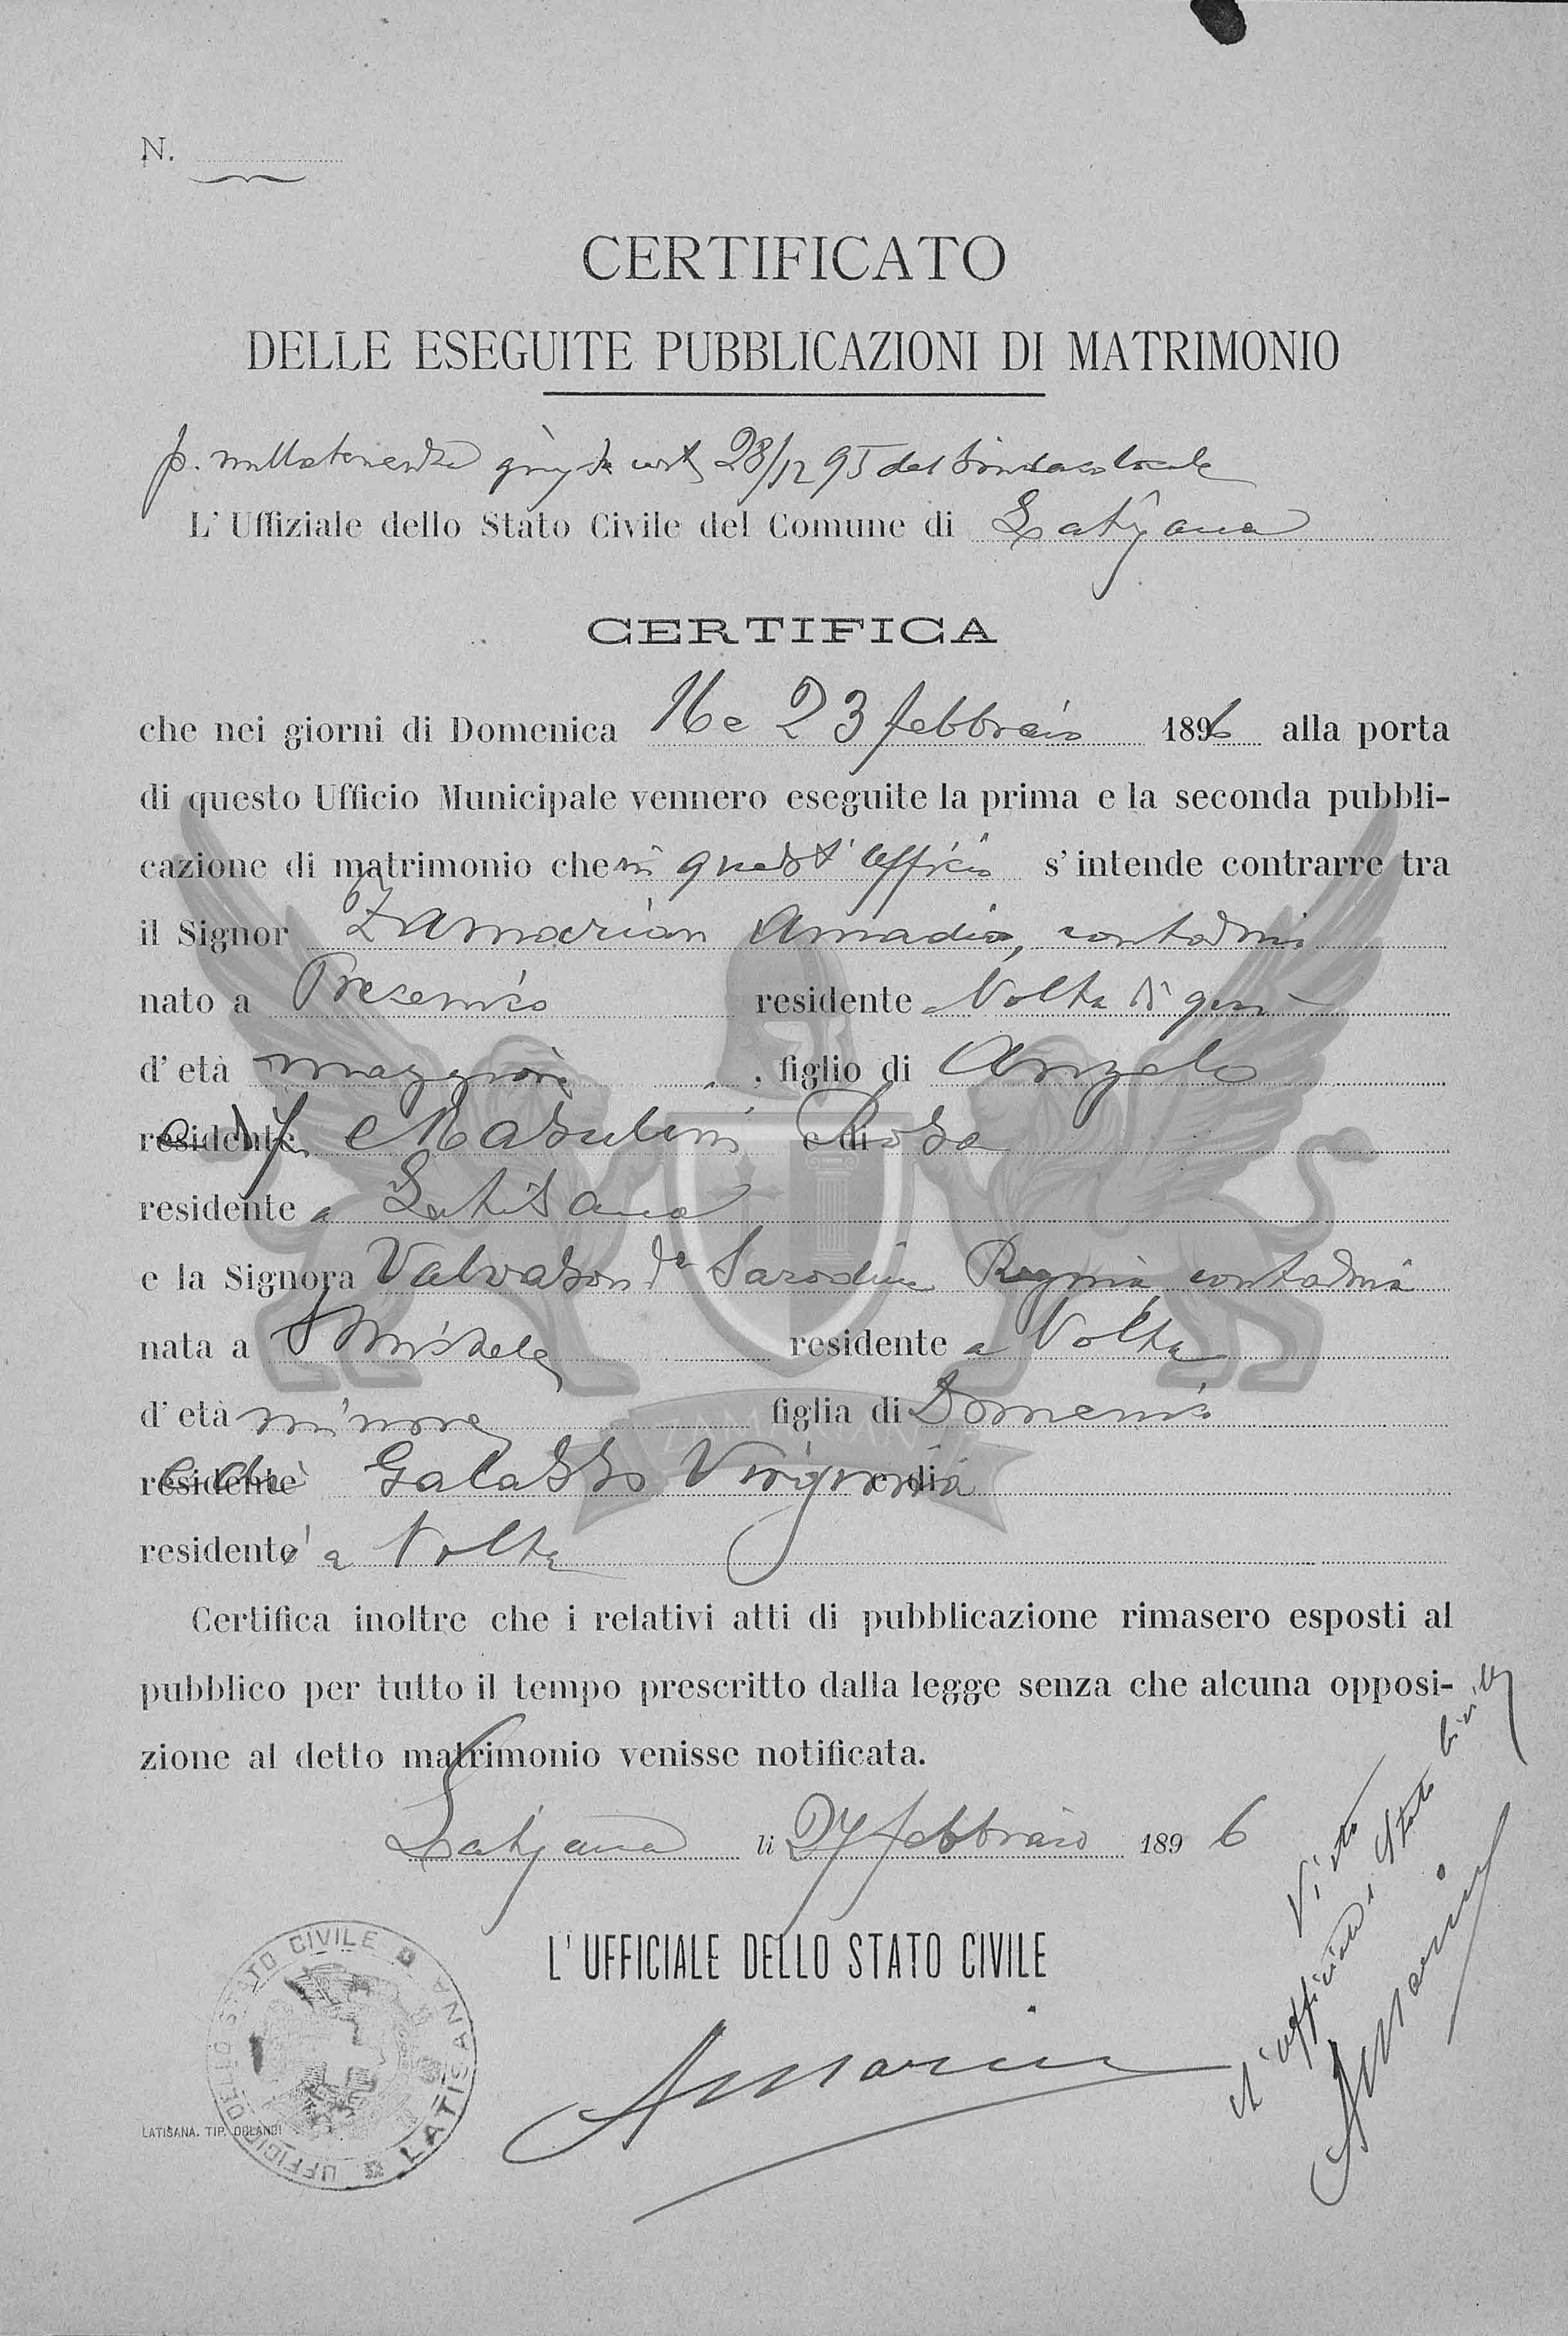 N.
CERTIFICATO
DELLE ESEGUITE PUBBLICAZIONI DI MATRIMONIO
p. nullatenenza 28/12 95 del Sindaco locale
L' Uffiziale dello Stato Civile del Comune di Latisana
CERTIFICA
che nei giorni di Domenica 16 e 23 febbraio 1896 alla porta
di questo Ufficio Municipale vennero eseguite la prima e la seconda pubbli-
cazione di matrimonio che in quest' ufficio s' intende contrarre tra
il Signor Zamarian Amadio, contadino
nato a Precenico residente a Volta di qui
d' età maggiore, figlio di Angelo
residente e di Rosa
residente a Latisana
e la Signora Valvason da Sarodine Regina contadina
nata a S Michele residente a Volta
d' età minore figlia di Domenico
residente e di Galasso Virginia e di
residente a Volta
Certifica inoltre che i relativi atti di pubblicazione rimasero esposti al
pubblico per tutto il tempo prescritto dalla legge senza che alcuna opposi-
zione al detto matrimonio venisse notificata.
Latisana li 27 febbraio 1896
L' UFFICIALE DELLO STATO CIVILE
AMarin
Visto
L'ufficiale di Stato Civile
AMarin
UFFICIO DELLO STATO CIVILE LATISANA
LATISANA. TIP. ORLANDI